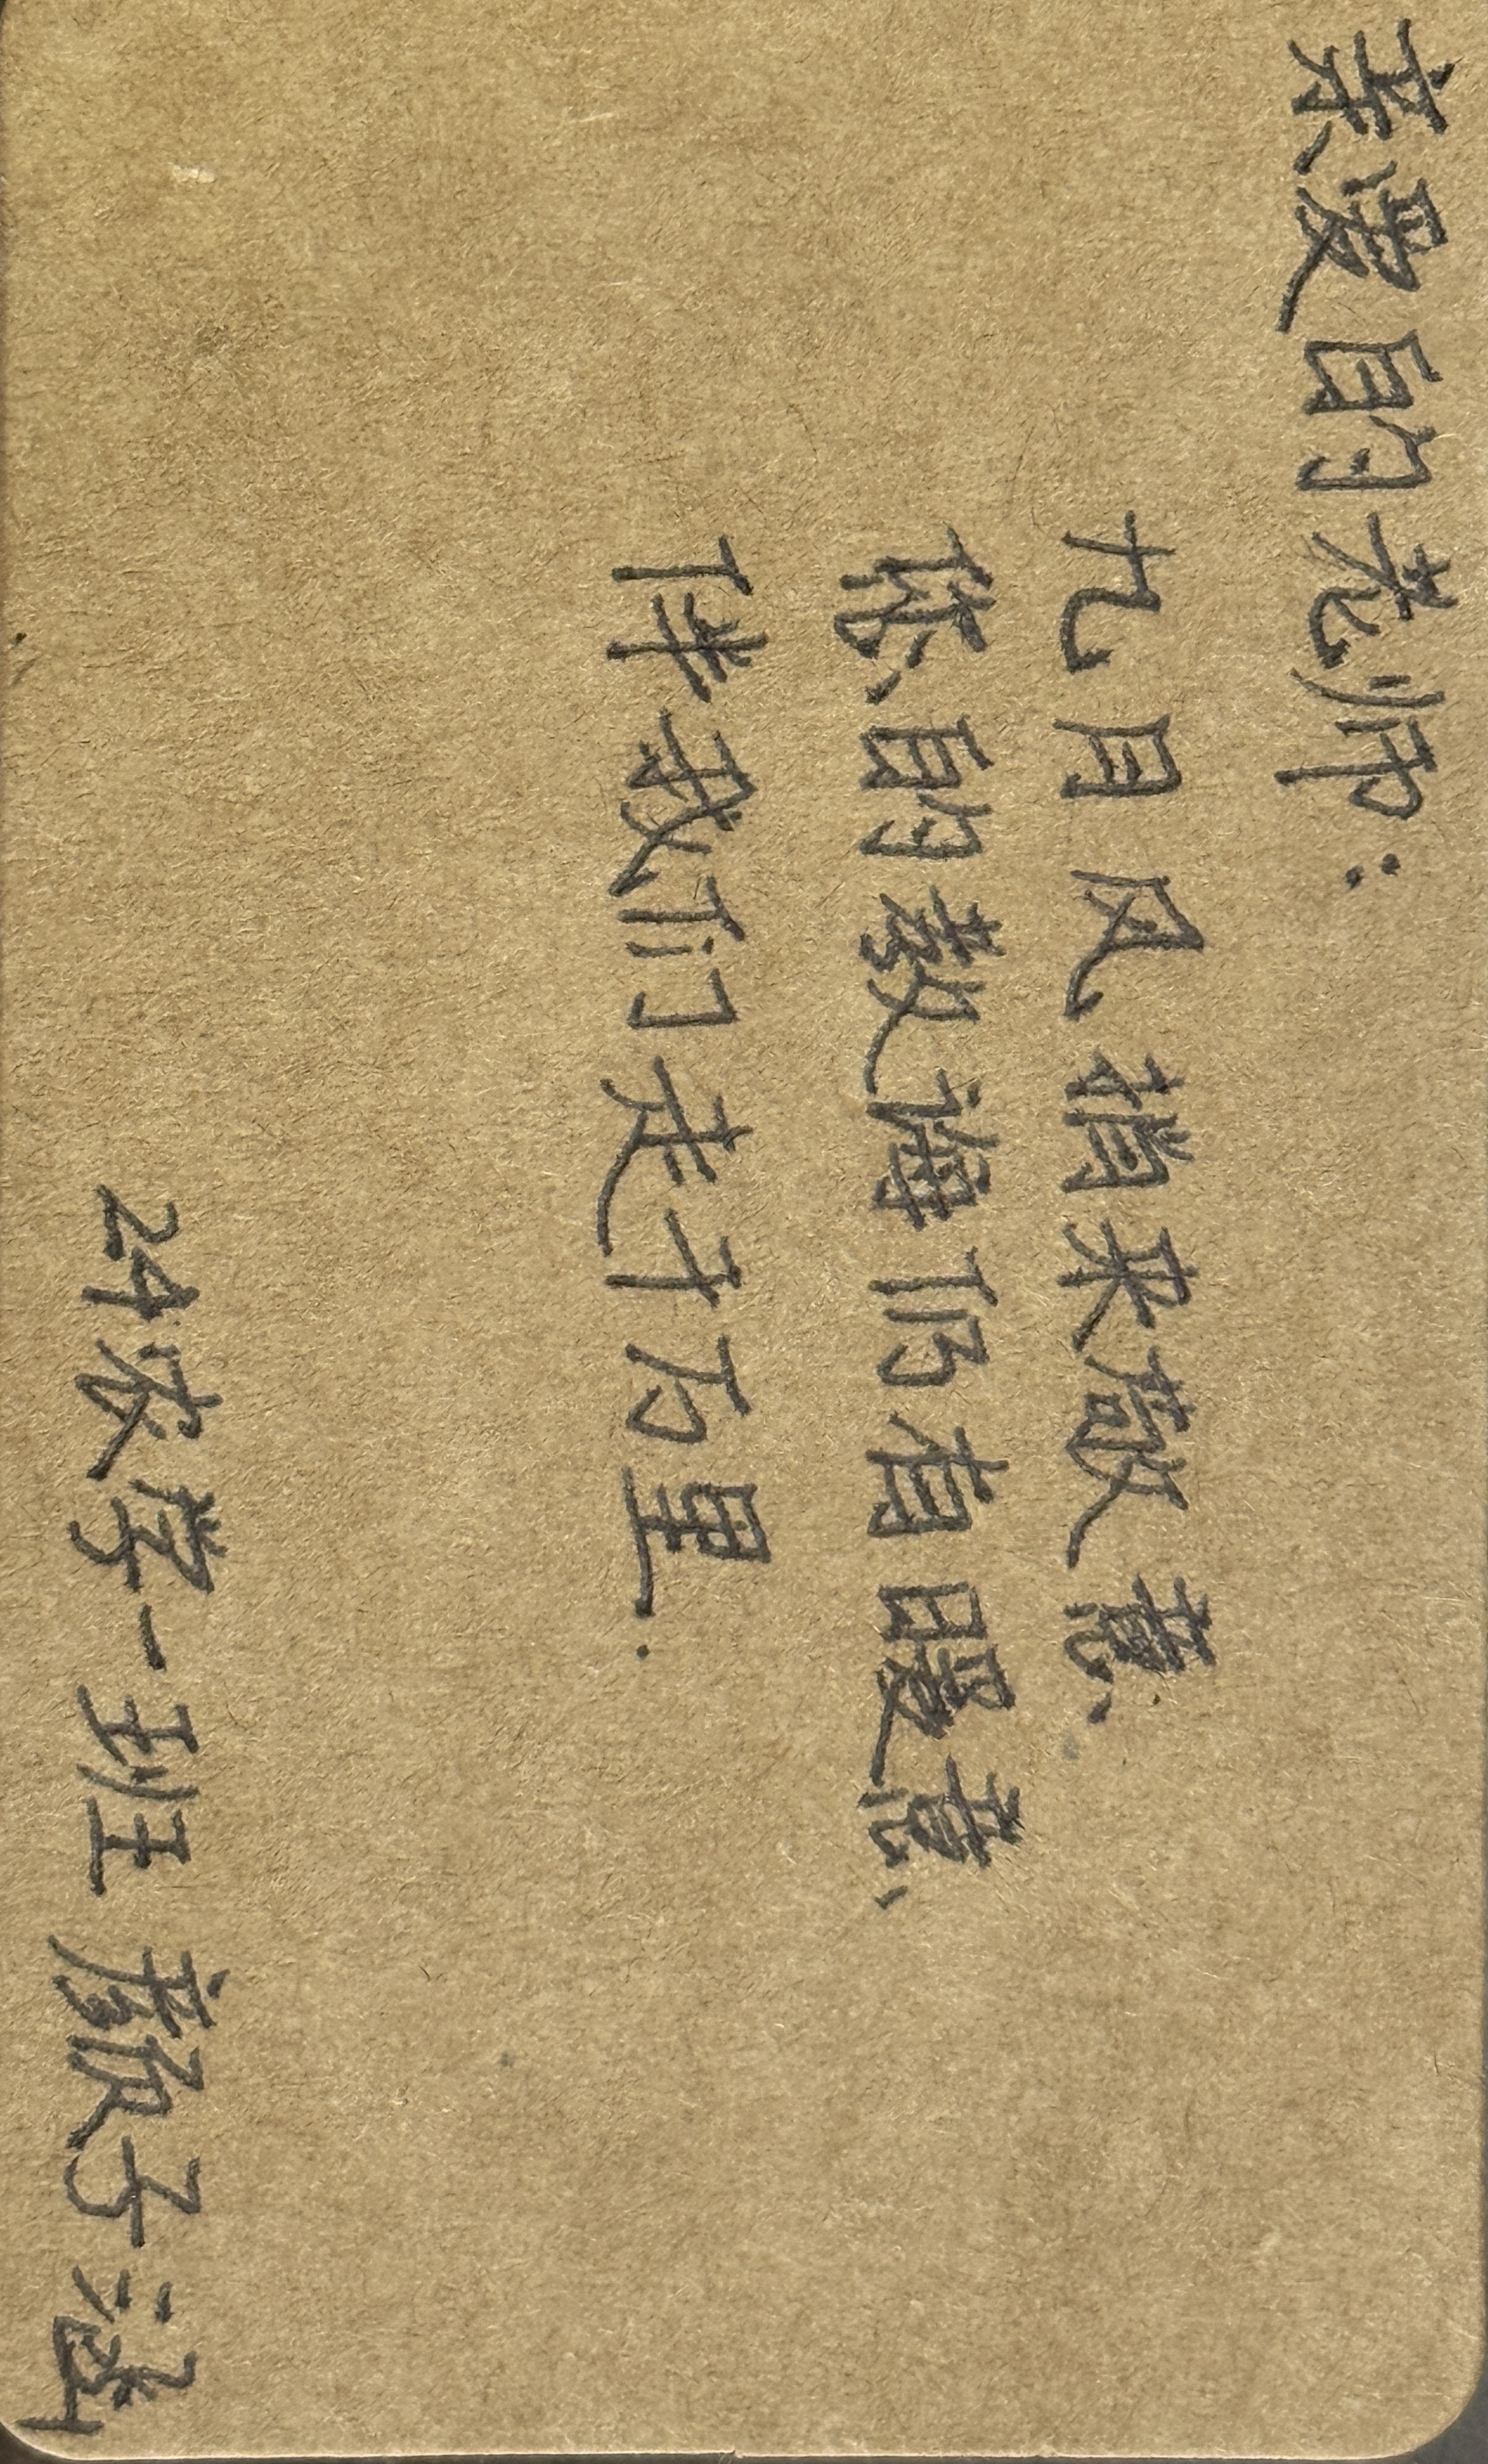 亲爱的老师：
九月风捎来敬意
您的教诲仍有暖意
伴我们走千万里.
24农学一班 颜子涵